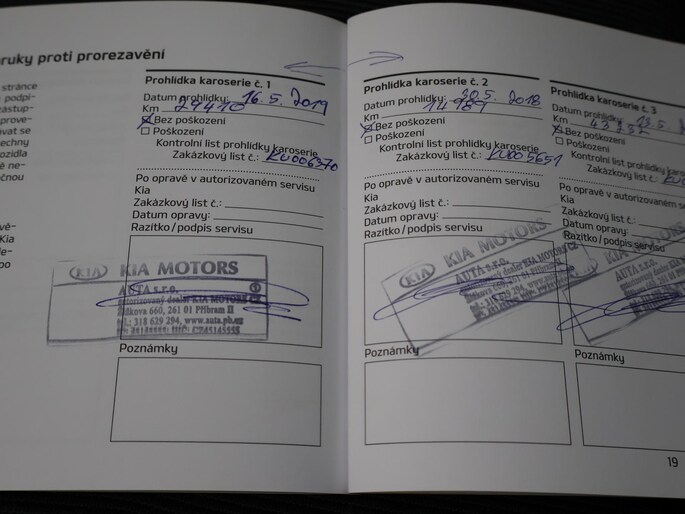 ruky proti prorezavění
stránce
podpi-
zástup-
prove-
vat se
echny
ozidla
ě ne-
ečnou
vě-
Kia
de-
po
Prohlídka karoserie č. 1
Datum prohlídky: 16. 5. 2019
Km 29410
Bez poškození
Poškození
Kontrolní list prohlídky karoserie
Zakázkový list č.: KU006370
Po opravě v autorizovaném servisu
Kia
Zakázkový list č.:
Datum opravy:
Razítko/podpis servisu
KIA KIA MOTORS
AUTA s.r.o.
autorizovaný dealer KIA MOTORS
Žižkova 660, 261 01 Příbram II
tel.: 318 629 294, www.auta.pb.cz
Poznámky
Prohlídka karoserie č. 2
Datum prohlídky: 30. 5. 2018
Km 14989
Bez poškození
Poškození
Kontrolní list prohlídky karoserie
Zakázkový list č.: KU005651
Po opravě v autorizovaném servisu
Kia
Zakázkový list č.:
Datum opravy:
Razítko/podpis servisu
KIA KIA MOTORS
AUTA s.r.o.
Poznámky
Prohlídka karoserie č. 3
Datum prohlídky:
Km
Bez poškození
Poškození
Kontrolní list prohlídky karos
Zakázkový list č.:
Po opravě v autorizovaném serv
Kia
Zakázkový list č.:
Datum opravy:
Razítko/podpis servisu
AUTA s.r.o.
Poznámky
19